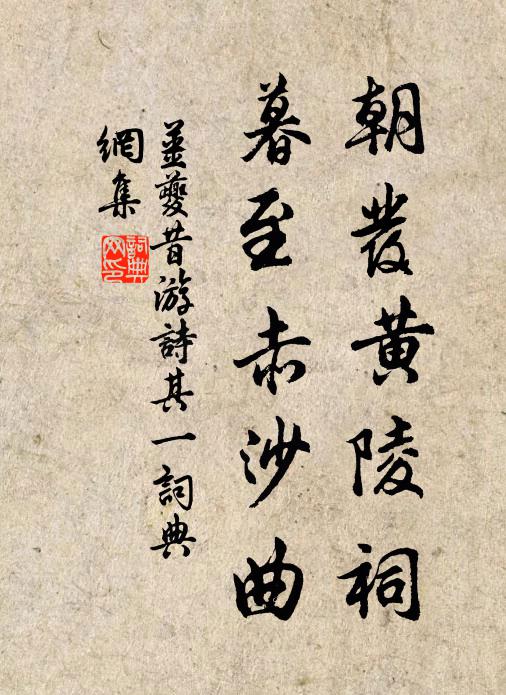 朝發黄陵祠
暮至赤沙曲
姜夔昔游詩其一詞典
網集
詞典
网印